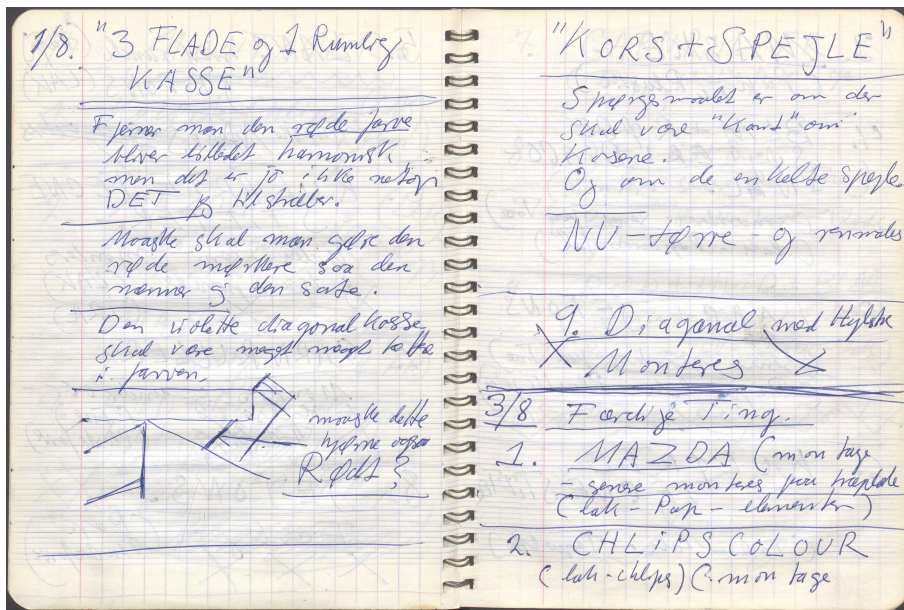 1/8. "3 FLADE og 1 Rumlig
KASSE"
Fjerner man den røde farve
bliver billedet harmonisk
men det er jo ikke netop
DET jeg tilstræber.
Maaske skal man gøre den
røde mørkere saa den
nærmer sig den sorte.
Den violette diagonal kasse
skal være meget meget
i farven.
maaske dette
hjørne ogsaa
Rødt?
"KORS + SPEJLE"
Spørgsmaalet er om der
skal være "Kant" om
Korsene.
Og om de enkelte spejle.
NU - tørre - og renmales
9. Diagonal med Hylstre
Monteres
3/8 Færdige Ting.
1. MAZDA (montage
- senere monteres paa træplade
(lak - Pap - elementer)
2. CHLiPS COLOUR
(lak - chlips) (: montage